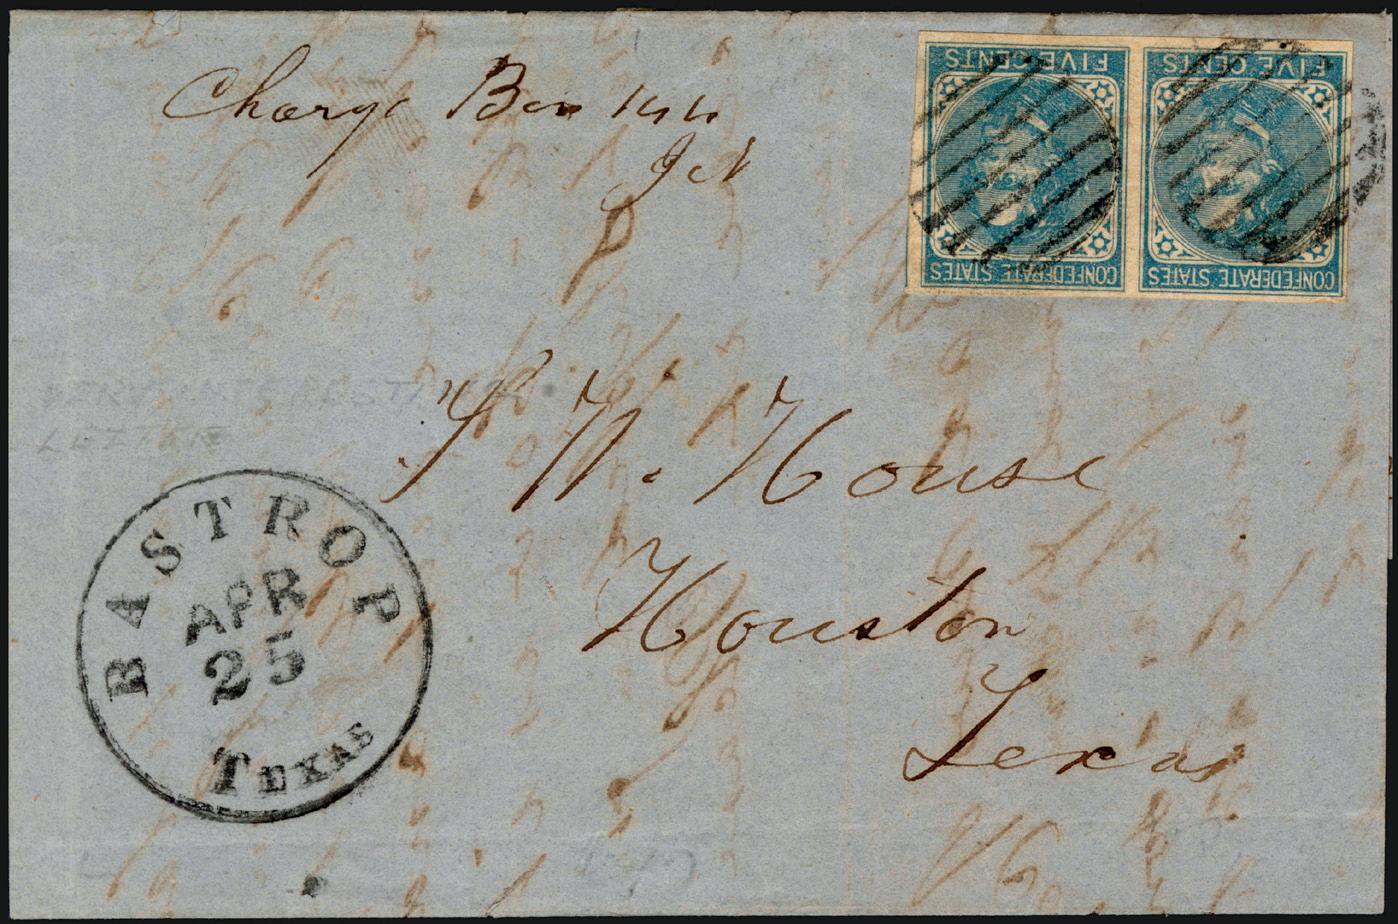 FIVE CENTS FIVE CENTS
CONFEDERATE STATES CONFEDERATE STATES
Charge Box 144
T. W. House
Houston
Texas
VERY INTERESTING
LETTER
BASTROP
APR
25
TEXAS